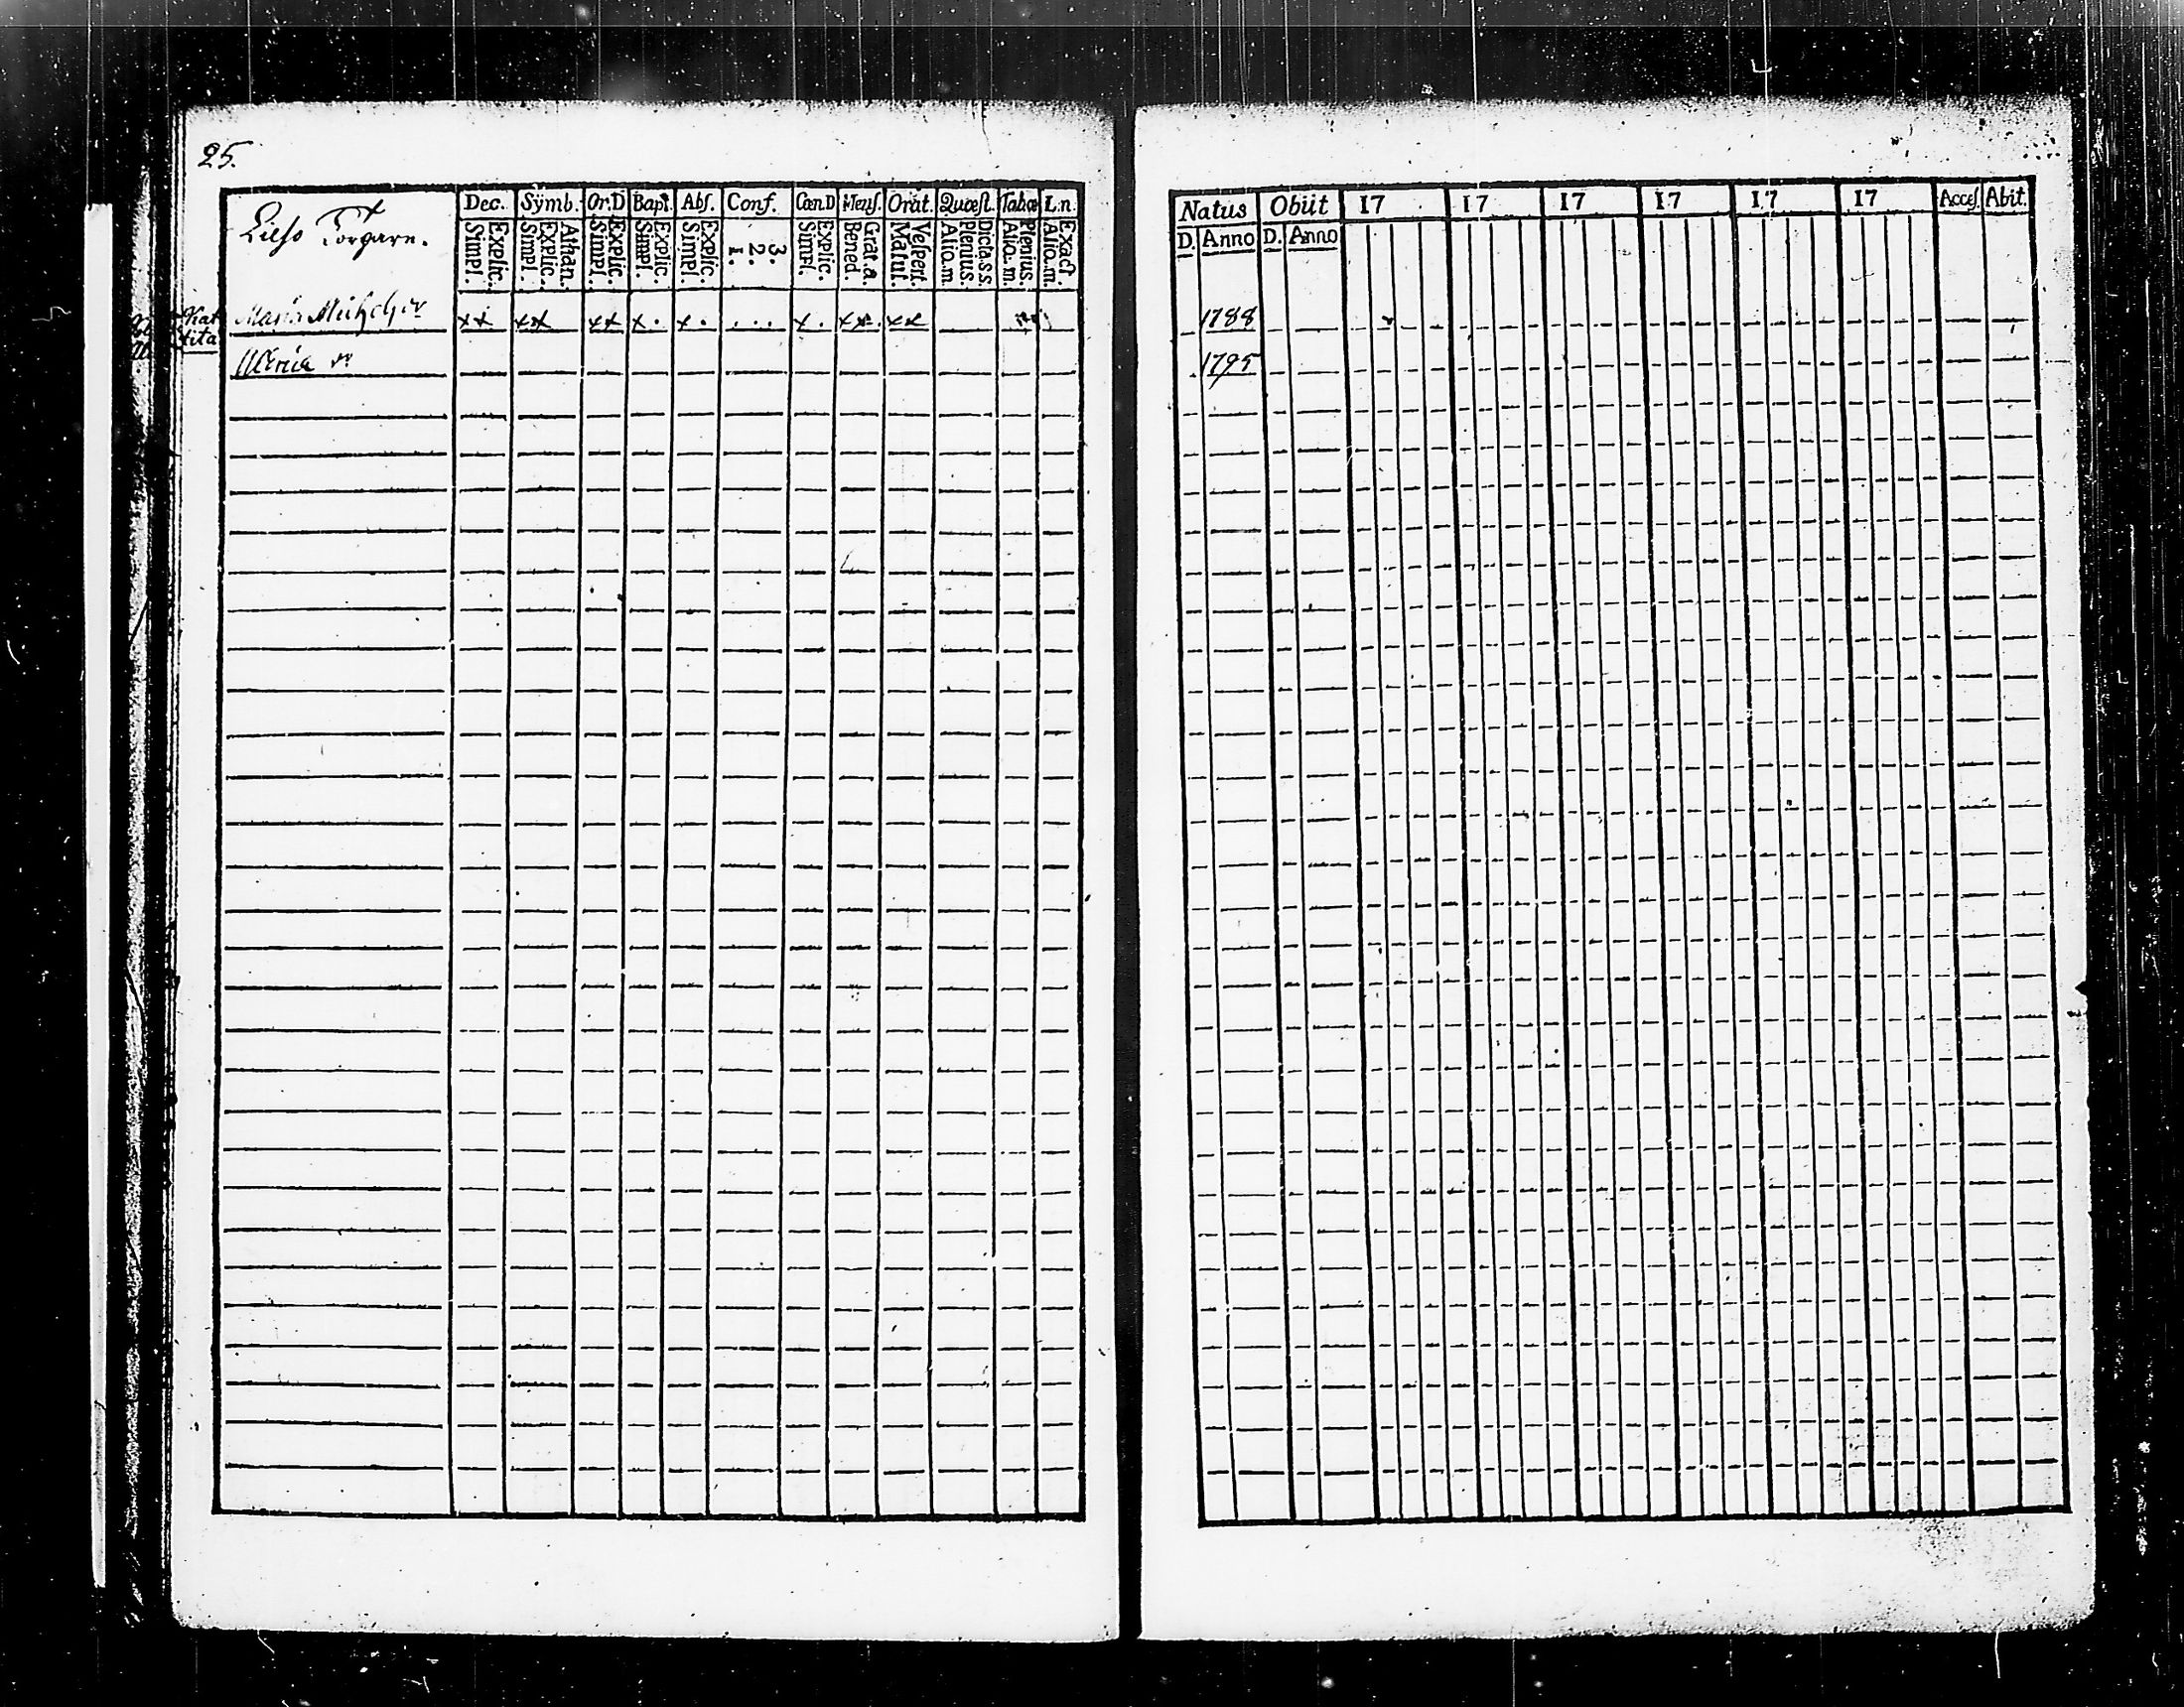 25.
Dec. Symb. Or.D Bapt. Abs. Conf. Cœn.D Mens. Orat. Quæst. Tabœ L.n.
Explic. Simpl.
Athan. Explic. Simpl.
Explic. Simpl.
Explic. Simpl.
Explic. Simpl.
3. 2. 1.
Explic. Simpl.
Grat.a. Bened.
Vespert. Matut.
Dicta.s.s. Plenius. Alio.m
Plenius. Alio.m.
Exact. Alio.m.
Torparn.
Maria xx xx xx x. x. ... x. xx. xx
Natus Obiit 17 17 17 17 17 17 Acces. Abit.
D. Anno D. Anno
1788
1795